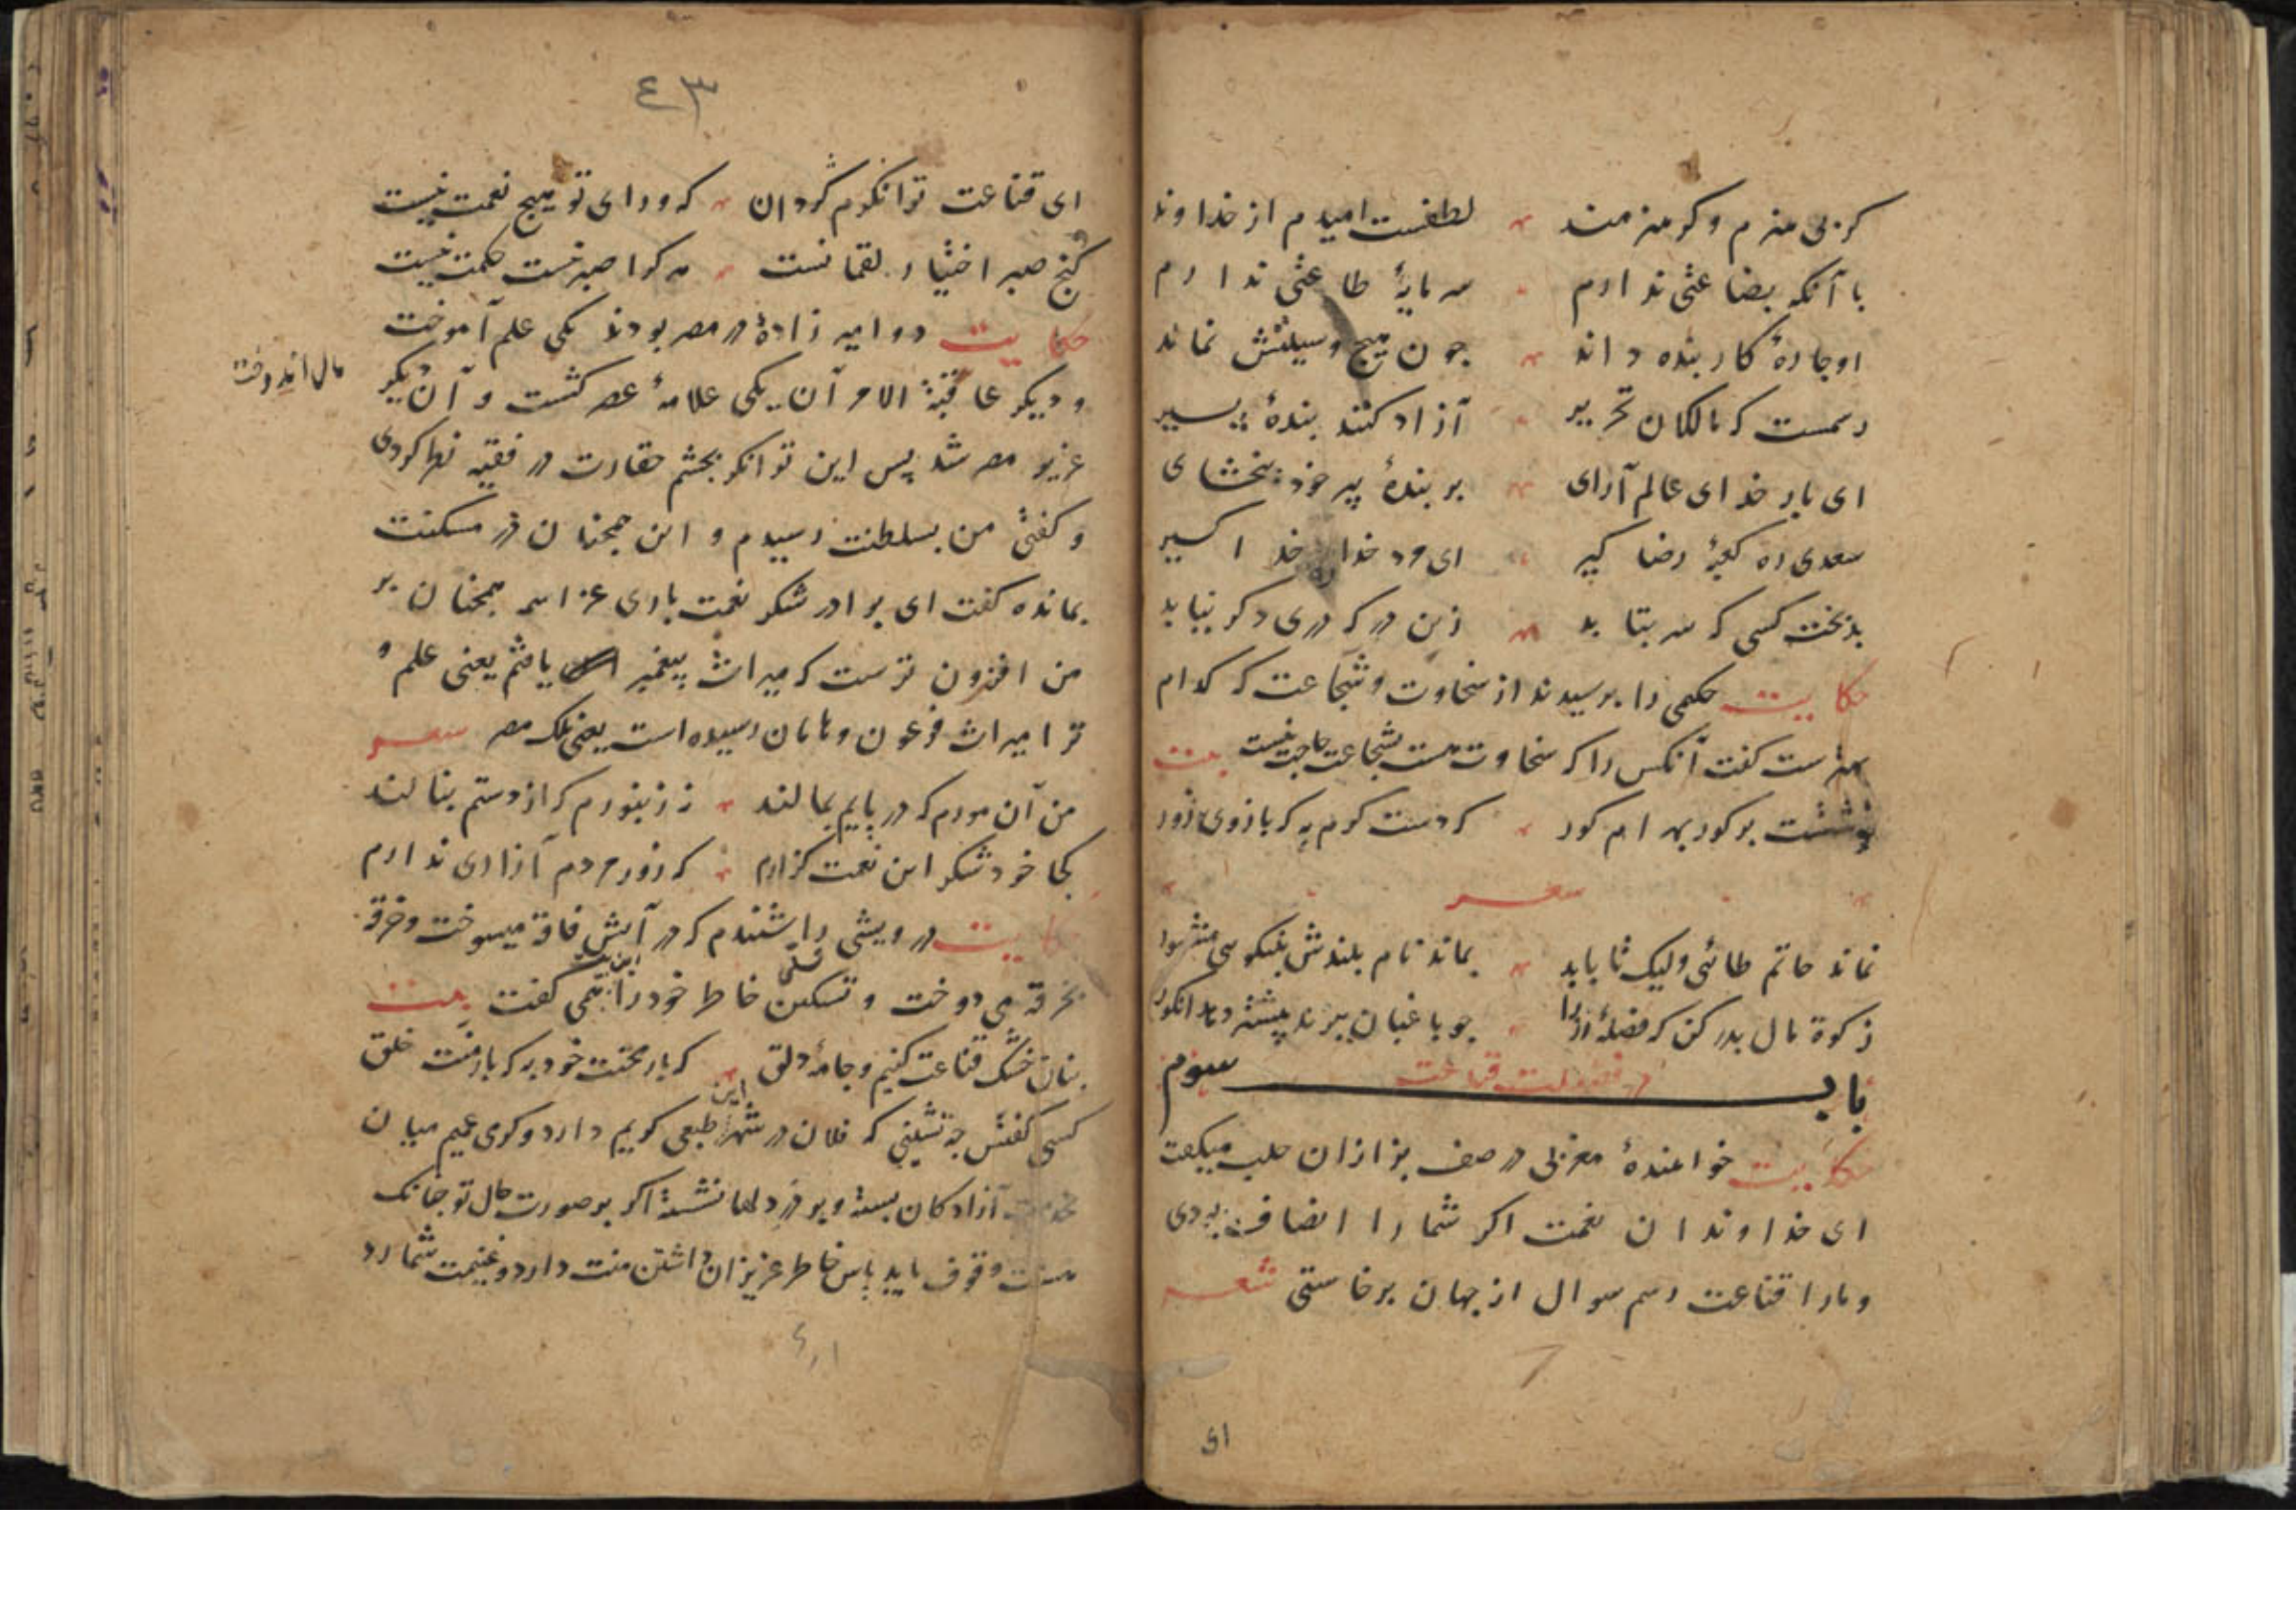 کر بی هنرم و کر هنرمند لطفست امیدم از خداوند
با آنکه بضاعتی ندارم سرمایهٔ طاعتی ندارم
او چارهٔ کار بنده داند چون هیچ وسیلتش نماند
رسمست که مالکان تحریر آزاد کنند بندهٔ پیر
ای بار خدای عالم آرای بر بندهٔ پیر خود ببخشای
سعدی ره کعبهٔ رضا کیر ای مرد خدا در خدا کیر
بدبخت کسی که سر بتابد زین در که دری دکر نیابد
حکایت حکیمی را برسیدند از سخاوت و شجاعت که کدام
بهترست کفت آنکس را که سخاوت هست بشجاعت حاجت نیست بیت
نوشتست بر کور بهرام کور که دست کرم به که بازوی زور
شعر
نماند حاتم طائی ولیک تا بابد بماند نام بلندش بنیکوی مشهور
زکوة مال بدر کن که فضلهٔ رز را چو باغبان ببرد بیشتر دهد انکور
باب سوم
در فضیلت قناعت
حکایت خواهندهٔ مغربی در صف بزازان حلب میکفت
ای خداوندان نعمت اکر شما را انصاف بودی
و ما را قناعت رسم سوال از جهان برخاستی شعر
ای
٤٣
ای قناعت توانکرم کردان که ورای تو هیچ نعمت نیست
کنج صبر اختیار لقمانست هر کرا صبر نیست حکمت نیست
حکایت دو امیرزادهٔ در مصر بودند یکی علم آموخت
و دیکر عاقبة الامر آن یکی علامهٔ عصر کشت و آن دیکر
مال اندوخت
عزیز مصر شد پس این توانکر بچشم حقارت در فقیه نظر کردی
و کفتی من بسلطنت رسیدم و این همچنان در مسکنت
بمانده کفت ای برادر شکر نعمت باری عز اسمه همچنان بر
من افزون ترست که میراث پیغمبر یافتم یعنی علم و
ترا میراث فرعون و هامان رسیده است یعنی ملک مصر شعر
من آن مورم که در پایم بمالند نه زنبورم که از دستم بنالند
کجا خود شکر این نعمت کزارم که زور مردم آزاری ندارم
حکایت درویشی را شنیدم که در آتش فاقه میسوخت و خرقه
بخرقه می دوخت و تسکین خاطر خود را همی کفت بیت
بنان خشک قناعت کنیم و جامه دلق که بار محنت خود به که بار منت خلق
کسی کفتش چه نشینی که فلان در این شهر طبعی کریم دارد و کرمی عمیم میان
بخدمت آزادکان بسته و بر در دلها نشسته اکر بر صورت حال تو چنانک
هست وقوف یابد پاس خاطر عزیزان داشتن منت دارد و غنیمت شمارد